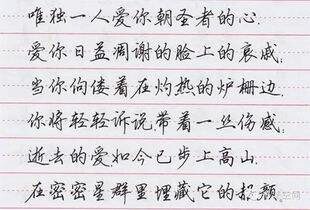 唯独一人爱你朝圣者的心.
爱你日益凋谢的脸上的哀戚;
当你佝偻着在灼热的炉栅边.
你将轻轻诉说,带着一丝伤感;
逝去的爱如今已步上高山.
在密密星群里埋藏它的赧颜.